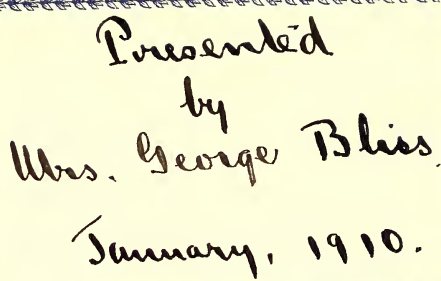 Presented
by
Mrs. George Bliss.
January, 1910.